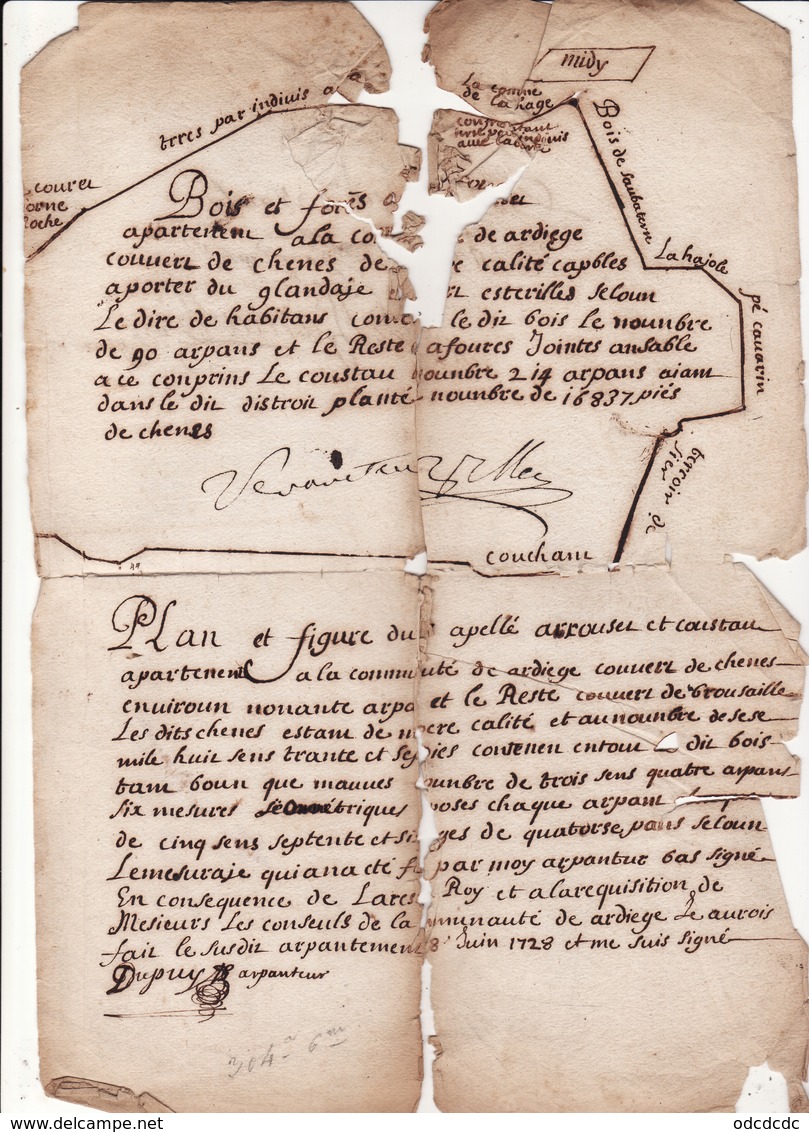 midy
La comne
de la hage
confrontant
avec
terres par indivis a la
Bois de Saubatern
couret
orne
Roche
Bois et forés
apartenent a la co de ardiege
La hajole
couvert de chenes de re calité capbles
aporter du glandaje et esterilles seloun
pé cavarin
Le dire de habitans con le dit bois le nounbre
de 90 arpans et le Reste afoures Jointes ansable
a ce conprins Le coustau nounbre 214 arpans aiant
dans le dit distroit planté nounbre de 16837 piés
de chenes
terroir de
couchant
PLan et figure du apellé arrouset et coustau
apartenent a la commuté de ardiege couvert de chenes
enviroun nonante arpa et le Reste couvert de brousaille
Les dits chenes estant de calité et au nounbre de sese
mile huit sens trante et sep piés contenen entout dit bois
tam boun que mauves nounbre de trois sens quatre arpans
six mesures poses chaque arpant
de cinq sens septente et si ges de quatorse pans seloun
Le mesuraje qui an a eté f par moy arpantur bas signé
En consequence de Lares Roy et a la requisition de
Mesieurs Les conseuls de la mmunauté de ardiege Je aurois
fait le susdit arpantement 8 Juin 1728 et me suis signé
Dupuy arpanteur
304a 6m
odcdcdc